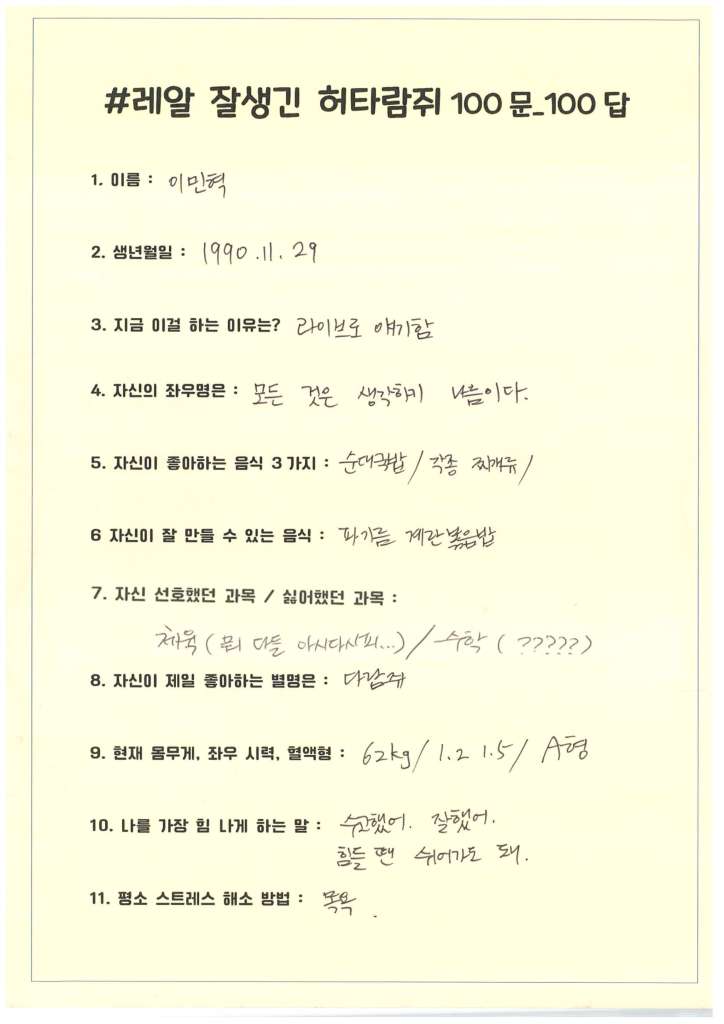 #레알 잘생긴 허타람쥐 100문_100답
1. 이름 : 이민혁
2. 생년월일 : 1990.11.29
3. 지금 이걸 하는 이유는? 라이브로 얘기함
4. 자신의 좌우명은 : 모든 것은 생각하기 나름이다.
5. 자신이 좋아하는 음식 3가지 : 순대국밥 / 각종 찌개류 /
6 자신이 잘 만들 수 있는 음식 : 파기름 계란볶음밥
7. 자신 선호했던 과목 / 싫어했던 과목 :
체육 (뭐 다들 아시다시피...) / 수학 (?????)
8. 자신이 제일 좋아하는 별명은 : 다람쥐
9. 현재 몸무게, 좌우 시력, 혈액형 : 62kg / 1.2 1.5 / A형
10. 나를 가장 힘 나게 하는 말 : 수고했어. 잘했어.
힘들 땐 쉬어가도 돼.
11. 평소 스트레스 해소 방법 : 목욕.